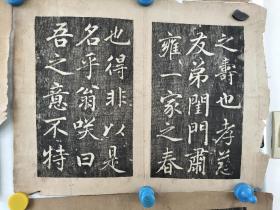 之壽也孝慈
友弟閨門肅
雍一家之春
也得非以是
名乎翁咲曰
吾之意不特